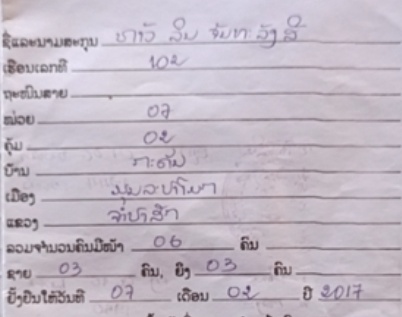 ຊື່ແລະນາມສະກຸນ ທ້າວ ສິນ ຈັນທະລັງສີ
ເຮືອນເລກທີ 102
ຖະໜົນສາຍ
ໜ່ວຍ 07
ຄຸ້ມ 02
ບ້ານ
ເມືອງ ມຸນລະປາໂມກ
ແຂວງ ຈຳປາສັກ
ລວມຈຳນວນຄົນມີໜ້າ 06 ຄົນ
ຊາຍ 03 ຄົນ, ຍິງ 03 ຄົນ
ຢັ້ງຢືນໃຫ້ວັນທີ 07 ເດືອນ 02 ປີ 2017